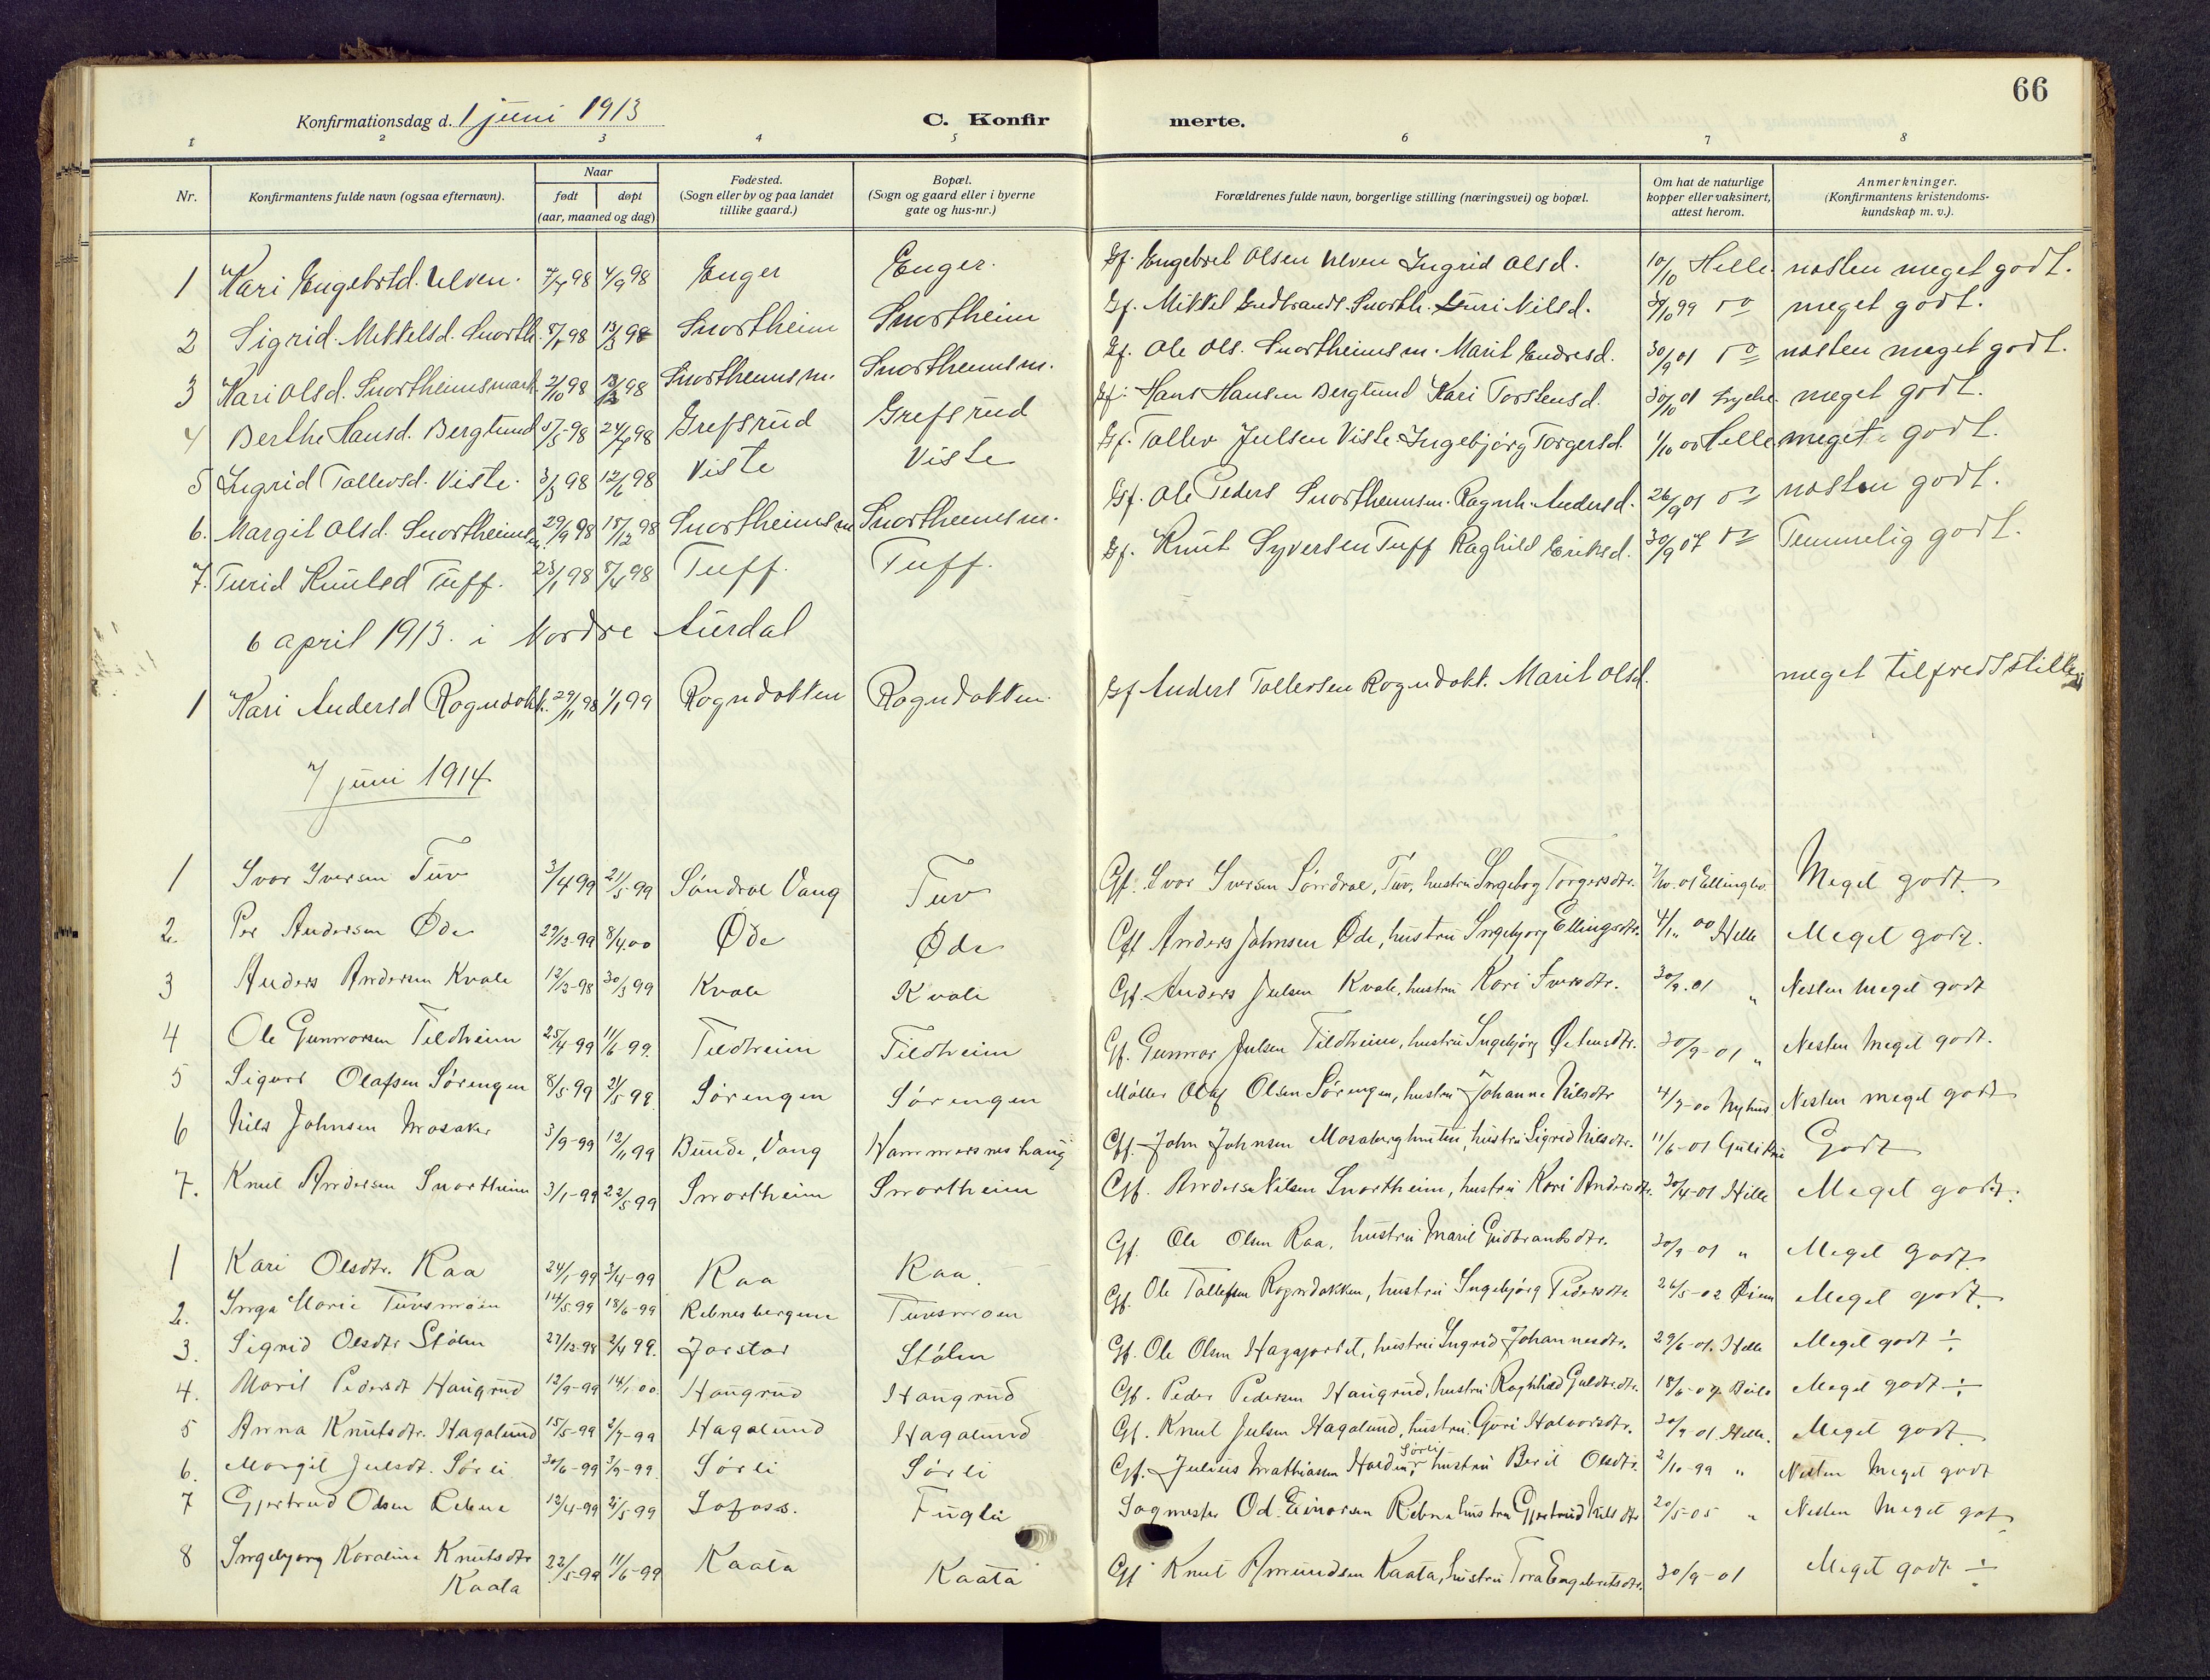 66
Konfirmationsdag d. 1 juni 1913
C. Konfir merte.
1 2 3 4 5 6 7 8
Nr.
Konfirmantens fulde navn (ogsaa efternavn).
Naar
født døpt
(aar, maaned og dag)
Fødested.
(Sogn eller by og paa landet
tillike gaard.)
Bopæl.
(Sogn og gaard eller i byerne
gate og hus-nr.)
Forældrenes fulde navn, borgerlige stilling (næringsvei) og bopæl.
Om hat de naturlige
kopper eller vaksinert,
attest herom.
Anmerkninger.
(Konfirmantens kristendoms-
kundskap m. v.).
1 Kari Engebrtd. Ulven. 98 4/9 98 Enger Enger. Gf. Engebret Olsen Ulven Ingrid Olsd. 10/10 Helle. næsten meget godt.
2 Sigrid Mikkelsd. Snorth. 98 13/3 98 Snortheim Snortheim Gf. Mikkel Gudbrands. Snorth. Guri Nilsd. 99 do meget godt.
3 Kari Olsd. Snortheimsmark 2/10 98 98 Snortheims m. Snortheims m. Gf. Ole Ols. Snortheims m. Marit Endresd. 30/9 01 do næsten meget godt.
4 Berthe Hansd. Berglund 98 98 Grefsrud Grefsrud Gf. Hans Hansen Berglund Kari Torstensd. 30/10 01 meget godt.
5 Ingrid Tollevsd. Viste. 3/3 98 12/6 98 Viste Viste Gf. Tollev Julsen Viste Ingebjørg Torgersd. 1/10 00 Helle meget godt.
6. Margit Olsd. Snortheimsm. 29/9 98 18/12 98 Snortheims m Snortheims m. Gf. Ole Peders Snortheimsm. Ragnh. Andersd. 26/9 01 do næsten godt.
7. Turid Knutsd Tuff. 23/1 98 8/4 98 Tuff. Tuff. Gf. Knut Syversen Tuff Raghild Eriksd. 30/9 07 do Temmelig godt.
6 april 1913. i Nordre Aurdal
1 Kari Andersd Rogndokk. 29/11 98 1/1 99 Rogndokken Rogndokken. Gf Anders Tollevsen Rogndokk. Marit Olsd. meget tilfredsstille
7 juni 1914
1 Ivar Iversen Tuv 3/4 99 21/5 99 Søndrol Vang Tuv Gf. Ivar Iversen Søndrol, Tuv, hustru Ingebog Torgersdtr. Meget godt.
2. Per Andersen Øde 29/12-99 8/4.00 Øde Øde Gf Anders Johnsen Øde, hustru Ingebjorg Ellingsdtr. 00 Helle Meget godt.
3 Anders Andersen Kvale 12/12-98 30/3 99 Kvale Kvale Gf. Anders Julsen Kvale, hustru Kari Iversdtr. 30/9.01 " Nesten Meget godt
4 Ole Gunnarsen Tildheim 25/4-99 11/6-99. Tildheim Tildheim Gf. Gunnar Julsen Tildheim, hustru Ingebjørg Østensdtr. 30/9-01 " Nesten Meget godt.
5 Sigurd Olafsen Sørengen 8/5 99 21/5 99. Sørengen Sørengen Møller Olaf Olsen Sørengen, hustru Johanne Nilsdtr 4/7-00 Nyhus Nesten meget godt
6 Nils Johnsen Mosaker 3/9-99 12/11 99 Bunde, Vang Hammersneshaug Gf. John Johnsen hustru Sigrid Nilsdtr. 11/6-01 Godt
7. Knut Andersen Snortheim 3/1-99 22/5 99 Snortheim Snortheim Gf. Anders Nilsen Snortheim, hustru Kari Andersdtr. 30/4-01 Hille Meget godt.
1 Kari Olsdtr. Raa 24/1-99 3/4-99 Raa Raa. Gf. Ole Olsen Raa, hustru Marit Gudbrandsdtr. 30/9-01 " Meget godt
2. Inga Marie Tuvsmoen 14/5-99 18/6-99 Rebnesbergene Tuvsmoen Gf. Ole Tollefsen Rogndokken, hustru Ingebjørg Pedersdtr. 26/5-02 Meget godt.
3. Sigrid Olsdtr Stølen 27/12-98 2/4 99. Jarstad Stølen Gf. Ole Olsen hustru Ingrid Johannesdtr. 29/6-01. Helle Meget godt ÷
4. Marit Pedersdt Haugrud 12/9-99 14/1 00. Haugrud Haugrud Gf. Peder Pedersen Haugrud, hustru Raghild Guldbrdtr. 18/6-07 Meget godt ÷
5 Anna Knutsdtr. Hagalund 15/5-99 2/7-99 Hagalund Hagalund Gf. Knut Julsen Hagalund, hustru Guri Halvorsdtr. 30/9-01 Helle. Meget godt
6. Margit Julsdt. Sørli 30/6-99 3/9-99. Sørli Sørli Gf. Julius Mathiassen Sørli hustru Berit Olsdtr. 2/10-99 " Nesten Meget godt
7 Gjertrud Odsen Rebne 12/4-99 21/5 99 Fuglei Sagmester Od. Einarsen Rebne hustru Gjertrud Nilsdtr 20/5-05 " Nesten Meget got
8 Ingebjørg Karoline Knutsdtr 22/5-99 11/6-99 Kaata Kaata Gf Knut Amundsen Kaata, hustru Tora Engebretsdtr. 30/9-01 Meget godt ÷
Kaata